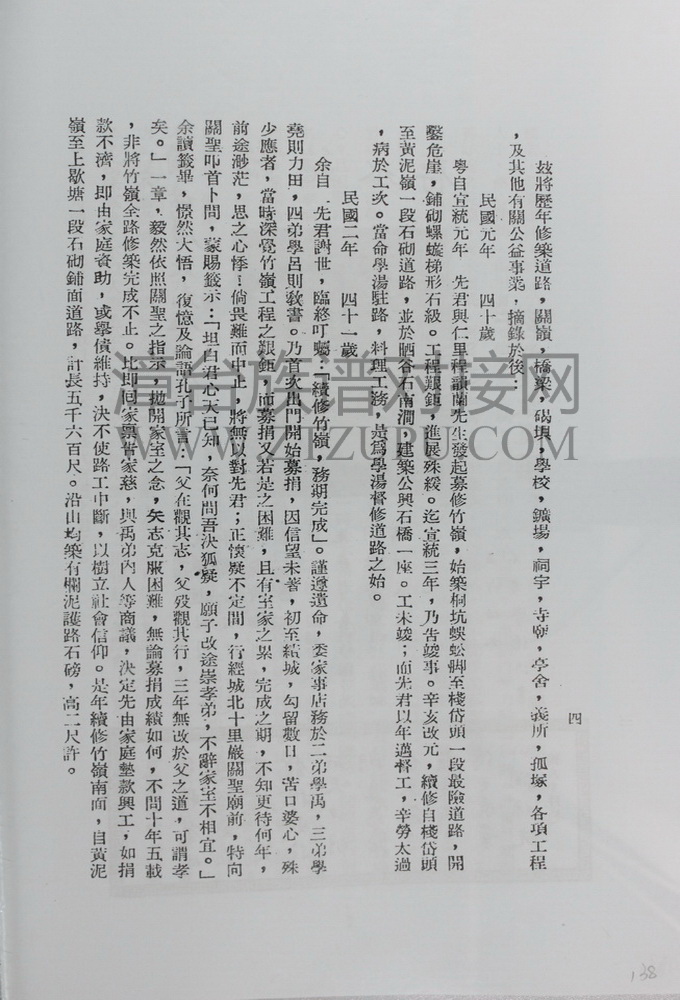 四
茲將歷年修築道路，關嶺，橋梁，碣垻，學校，鑛場，祠宇，寺廟，亭舍，義所，孤塚，各項工程
，及其他有關公益事業，摘錄於後：
民國元年　四十歲
粵自宣統元年　先君與仁里程讀蘭先生發起募修竹嶺，始築桐坑蜈蚣脚至棧岱頭一段最險道路，開
鑿危崖，鋪砌螺螄梯形石級。工程艱鉅，進展殊緩。迄宣統三年，乃告竣事。辛亥改元，續修自棧岱頭
至黃泥嶺一段石砌道路，並於晒谷石南澗，建築公興石橋一座。工未竣；而先君以年邁督工，辛勞太過
，病於工次。當命學湯駐路，料理工務，是爲學湯督修道路之始。
民國二年　四十一歲
余自　先君謝世，臨終叮囑：「續修竹嶺，務期完成」。謹遵遺命，委家事店務於二弟學禹，三弟學
堯則力田，四弟學呂則敎書。乃首次出門開始募捐，因信望未著，初至績城，勾留數日，苦口婆心，殊
少應者，當時深覺竹嶺工程之艱鉅，而募捐又若是之困難，且有室家之累，完成之期，不知更待何年，
前途渺茫，思之心悸！倘畏難而中止，將無以對先君；正懷疑不定間，行經城北十里巖關聖廟前，特向
關聖叩首卜問，蒙賜籤示：「坦白君心天已知，奈何問吾決狐疑，願子改途崇孝弟，不辭家室不相宜。」
余讀籤畢，憬然大悟，復憶及論語孔子所言：「父在觀其志，父歿觀其行，三年無改於父之道，可謂孝
矣。」一章，毅然依照關聖之指示，拋開家室之念，矢志克服困難，無論募捐成績如何，不問十年五載
，非將竹嶺全路修築完成不止。比即回家禀告家慈，與禹弟內人等商議，決定先由家庭墊款興工，如捐
款不濟，即由家庭資助，或舉債維持，決不使路工中斷，以樹立社會信仰。是年續修竹嶺南面，自黃泥
嶺至上歇塘一段石砌鋪面道路，計長五千六百尺。沿山均築有欄泥護路石磅，高二尺許。
海谷族譜对接网
WWW.JZZUPU.COM
138